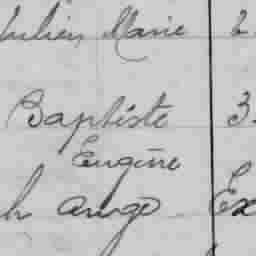 Julien Marie 2
Baptiste 3.
Eugène
h ange Ex